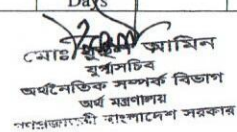 Days
মোঃ আমিন
যুগ্মসচিব
অর্থনৈতিক সম্পর্ক বিভাগ
অর্থ মন্ত্রণালয়
গণপ্রজাতন্ত্রী বাংলাদেশ সরকার